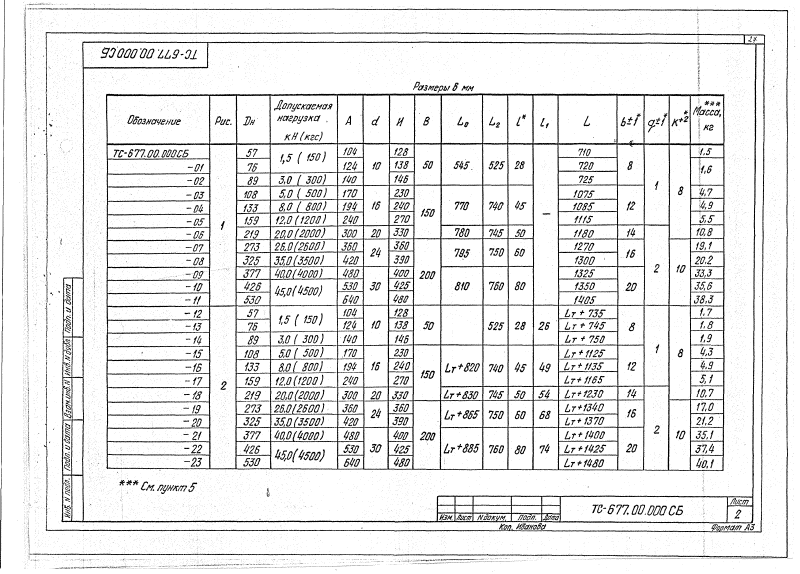 27
ТС-677.00.000 СБ
Размеры в мм
Обозначение Рис. Dн Допускаемая нагрузка кН (кгс) А d Н В L₀ L₂ l* l₁ L b±1* q±1* к+2* *** Масса, кг
ТС-677.00.000СБ 1 57 1,5 ( 150) 104 10 128 50 545 525 28 — 710 8 1 8 1,5
-01 76 124 138 720 1,6
-02 89 3,0 ( 300) 140 146 725
-03 108 5,0 ( 500) 170 16 230 150 770 740 45 1075 12 4,7
-04 133 8,0 ( 800) 194 240 1085 4,9
-05 159 12,0 (1200) 240 270 1115 5,5
-06 219 20,0 (2000) 300 20 330 780 745 50 1180 14 10,8
-07 273 26,0 (2600) 360 24 360 200 795 750 60 1270 16 2 10 19,1
-08 325 35,0 (3500) 420 390 1300 20,2
-09 377 40,0 (4000) 480 30 400 810 760 80 1325 20 33,3
-10 426 45,0 (4500) 530 425 1350 35,6
-11 530 640 480 1405 38,3
-12 2 57 1,5 ( 150) 104 10 128 50 525 28 26 Lт + 735 8 1 8 1.7
-13 76 124 138 Lт + 745 1.8
-14 89 3,0 ( 300) 140 146 Lт + 750 1,9
-15 108 5,0 ( 500) 170 16 230 150 Lт+820 740 45 49 Lт +1125 12 4,3
-16 133 8,0 ( 800) 194 240 Lт +1135 4,9
-17 159 12,0 (1200) 240 270 Lт +1165 5,1
-18 219 20,0 (2000) 300 20 330 Lт+830 745 50 54 Lт+1230 14 10,7
-19 273 26,0 (2600) 360 24 360 200 Lт+865 750 60 68 Lт+1340 16 2 10 17,0
-20 325 35,0 (3500) 420 390 Lт +1370 21,2
-21 377 40,0 (4000) 480 30 400 Lт+885 760 80 74 Lт +1400 20 35,1
-22 426 45,0 (4500) 530 425 Lт +1425 37,4
-23 530 640 480 Lт +1480 40.1
*** См. пункт 5
Инв. N подл. Подп. и дата Взам. инв. N Инв. N дубл. Подп. и дата
Изм. Лист N докум. Подп. Дата
ТС-677.00.000 СБ
Лист
2
Коп. Иванова
Формат А3